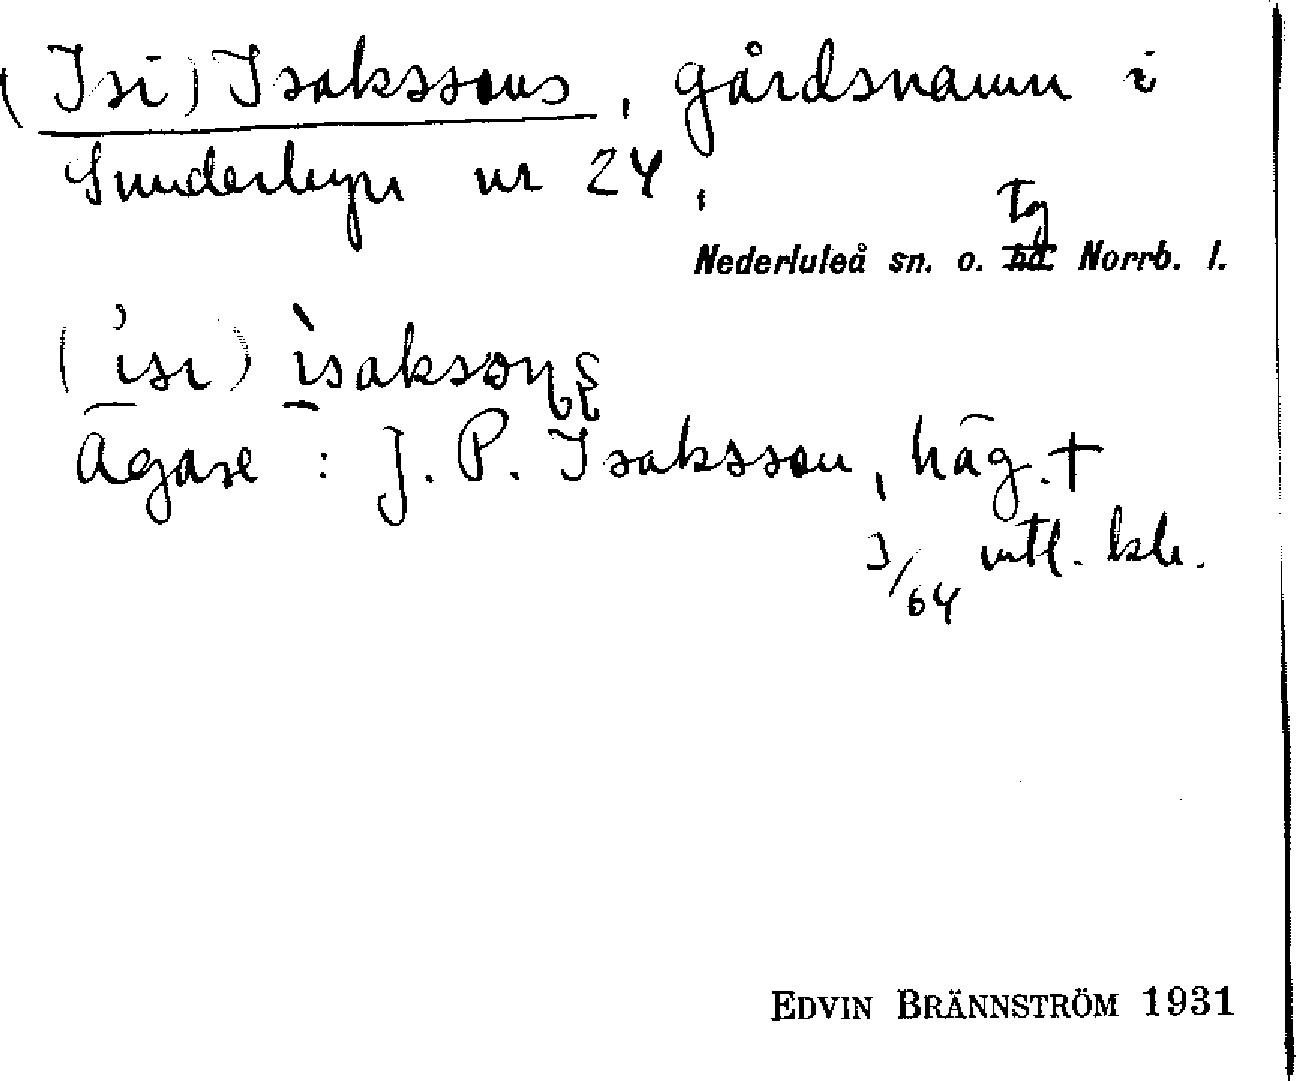 (Isi) Isakssons, gårdsnamn i
Sunderbyn nr 24,
Tg
Nederluleå sn. o. hd. Norrb. l.
(isi) isaksons
Ägare : J. P. Isaksson, häg. +
3/64 mtl. kr.
EDVIN BRÄNNSTRÖM 1931